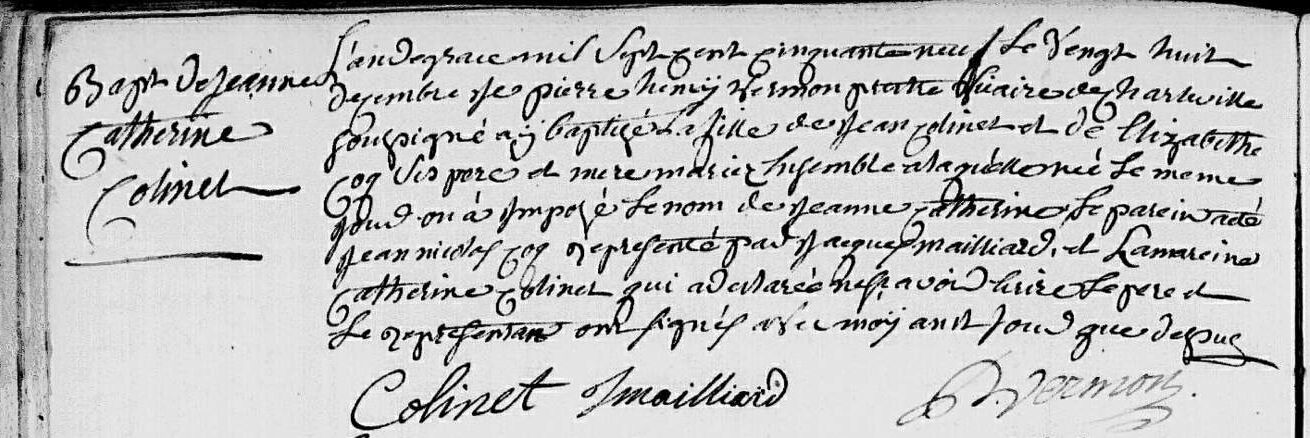 Bapt de Jeanne
Catherine
Colinet
L'an de grace mil Sept cent cinquante neuf Le Vengt huit
decembre Je pierre henry vermon prettre Vicaire de charleville
sousigné ay baptizé La fille de Jean Colinet et de Elizabethe
Coq Ses pere et mere mariez Ensemble a laquelle neé Le meme
Jour on á Imposé Le nom de Jeanne Catherine Le parein a eté
Jean nicolas Coq representé par Jacques mailliard, et La mareine
Catherine Colinet qui a declareé ne scavoir Ecrire Le pere et
Le representant ont signés avec moy au dt Jour que dessus
Colinet Jmailliard Vermon